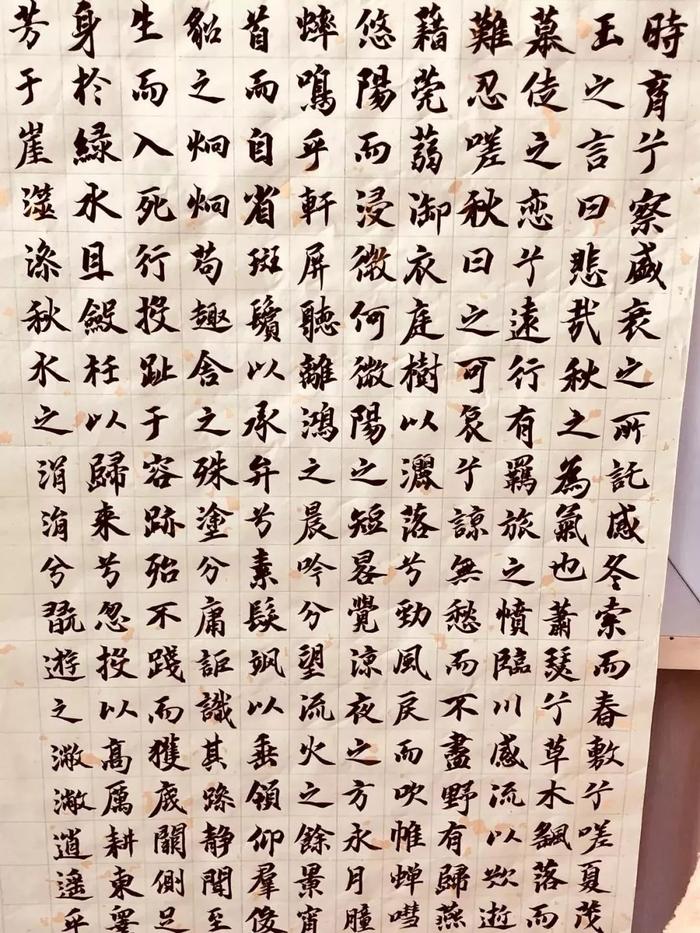 時育兮察盛衰之所託感冬索而春敷兮嗟夏茂
玉之言曰悲哉秋之為氣也蕭瑟兮草木飄落而
慕徒之恋兮遠行有羈旅之憤臨川感流以歎逝
難忍嗟秋日之可哀兮諒無愁而不盡野有歸燕
藉莞蒻御衣庭樹以灑落兮勁風戾而吹帷蟬嘒
悠陽而浸微何微陽之短晷覺涼夜之方永月朣
蟀鳴乎軒屏聽離鴻之晨吟兮望流火之餘景宵
首而自省斑鬢以承弁兮素髮颯以垂領仰羣俊
貂之炯炯苟趣舍之殊塗兮庸詎識其躁静聞至
生而入死行投趾于容跡殆不踐而獲底闕側足
身於綠水且斂衽以歸來兮忽投以高厲耕東睪
芳于崖澨滌秋水之涓涓兮翫遊之潎潎逍遙乎